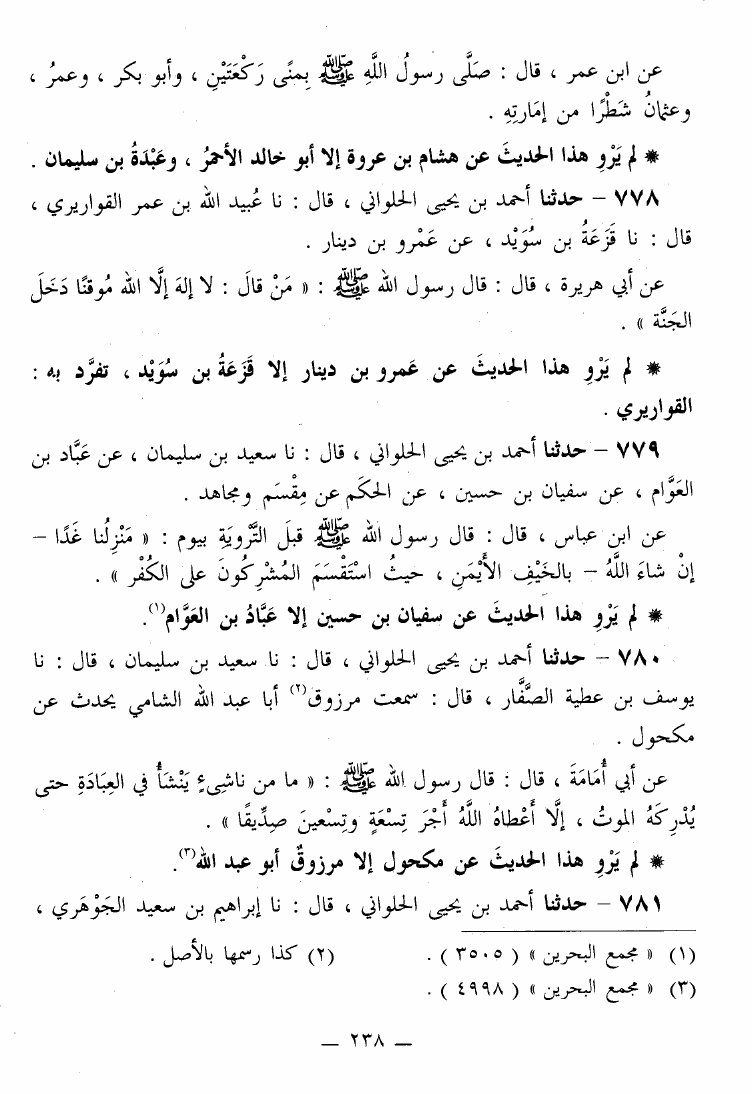 عن ابن عمر ، قال : صَلَّى رسولُ اللَّهِ ﷺ بِمنًى رَكْعَتَيْنِ ، وأبو بكر ، وعمرُ ،
وعثمانُ شَطْرًا من إمَارتِهِ .
* لم يَرْوِ هذا الحديثَ عن هشام بن عروة إلا أبو خالد الأحمرُ ، وعَبْدَةُ بن سليمان .
٧٧٨ – حدثنا أحمد بن يحيى الحلواني ، قال : نا عُبيد الله بن عمر القواريري ،
قال : نا قَزَعَةُ بن سُوَيْد ، عن عَمْرو بن دينار .
عن أبي هريرة ، قال : قال رسول الله ﷺ : « مَنْ قالَ : لا إلهَ إلَّا الله مُوقنًا دَخَلَ
الجنَّة » .
* لم يَرْوِ هذا الحديثَ عن عَمرو بن دينار إلا قَزَعَةُ بن سُوَيْد ، تفرَّد به :
القواريري .
٧٧٩ – حدثنا أحمد بن يحيى الحلواني ، قال : نا سعيد بن سليمان ، عن عَبَّاد بن
العَوَّام ، عن سفيان بن حسين ، عن الحكَم عن مِقْسَم ومجاهد .
عن ابن عباس ، قال : قال رسول الله ﷺ قبلَ التَّرْوِيَةِ بيوم : « مَنْزِلُنا غَدًا –
إنْ شاءَ اللَّهُ – بالخَيْفِ الأَيْمَنِ ، حيثُ اسْتَقْسَمَ المُشْرِكُونَ على الكُفْر » .
* لم يَرْوِ هذا الحديثَ عن سفيان بن حسين إلا عَبَّادُ بن العَوَّام(١).
٧٨٠ – حدثنا أحمد بن يحيى الحلواني ، قال : نا سعيد بن سليمان ، قال : نا
يوسف بن عطية الصَّفَّار ، قال : سمعت مرزوق(٢) أبا عبد الله الشامي يحدث عن
مكحول .
عن أبي أُمَامَةَ ، قال : قال رسول الله ﷺ : « ما من ناشِىءٍ يَنْشَأُ في العِبَادَةِ حتى
يُدْرِكَهُ الموتُ ، إلَّا أَعْطاهُ اللَّهُ أَجْرَ تِسْعَةٍ وتِسْعينَ صِدِّيقًا » .
* لم يَرْوِ هذا الحديثَ عن مكحول إلا مرزوقٌ أبو عبد الله(٣).
٧٨١ – حدثنا أحمد بن يحيى الحلواني ، قال : نا إبراهيم بن سعيد الجَوْهَري ،
(١) « مجمع البحرين » ( ٣٠٠٥ ) . (٢) كذا رسمها بالأصل .
(٣) « مجمع البحرين » ( ٤٩٩٨ ) .
– ٢٣٨ –